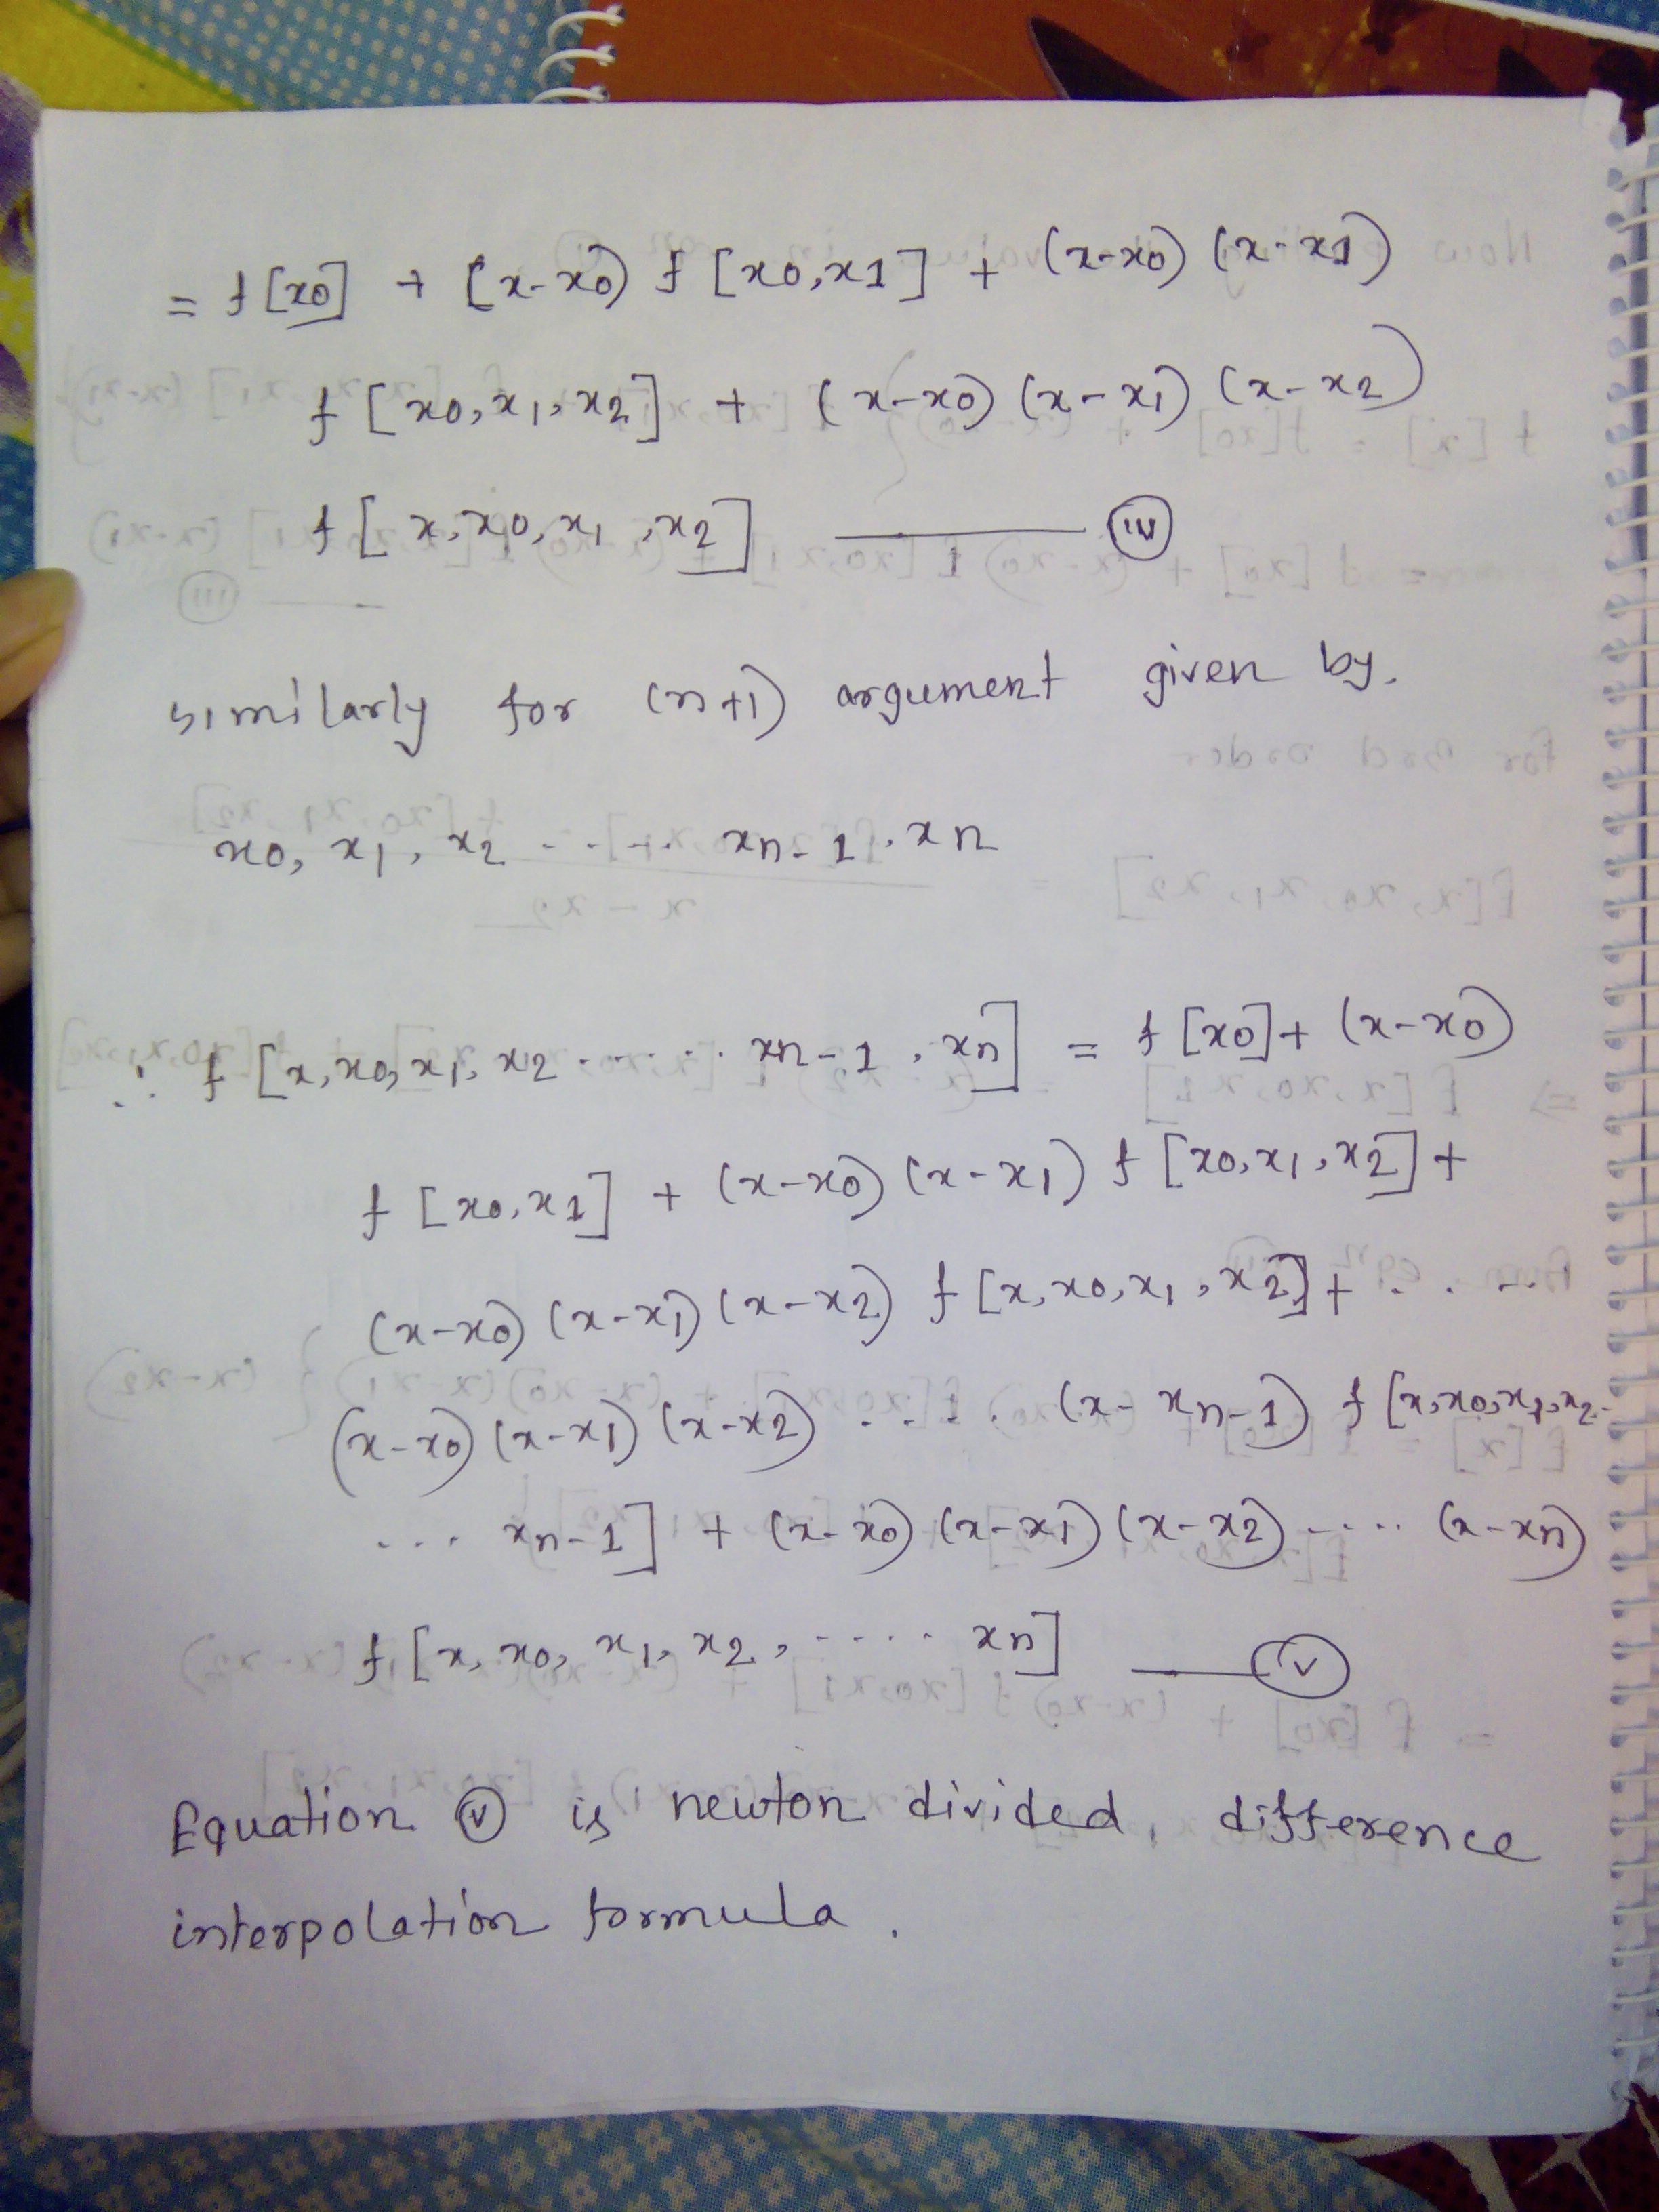 = f [x0] + (x-x0) f [x0,x1] + (x-x0) (x-x1)
f [x0,x1,x2] + (x-x0) (x-x1) (x-x2)
f [x,x0,x1,x2] —— (iv)
similarly for (n+1) argument given by.
x0, x1, x2 ..... xn-1, xn
∴ f [x,x0,x1,x2 ...... xn-1, xn] = f [x0] + (x-x0)
f [x0,x1] + (x-x0) (x-x1) f [x0,x1,x2] +
(x-x0) (x-x1) (x-x2) f [x,x0,x1,x2] + ....
(x-x0) (x-x1) (x-x2) .... (x-xn-1) f [x,x0,x1,x2.
... xn-1] + (x-x0) (x-x1) (x-x2) ..... (x-xn)
f [x, x0, x1, x2, ..... xn] —— (v)
Equation (v) is newton divided, difference
interpolation formula.